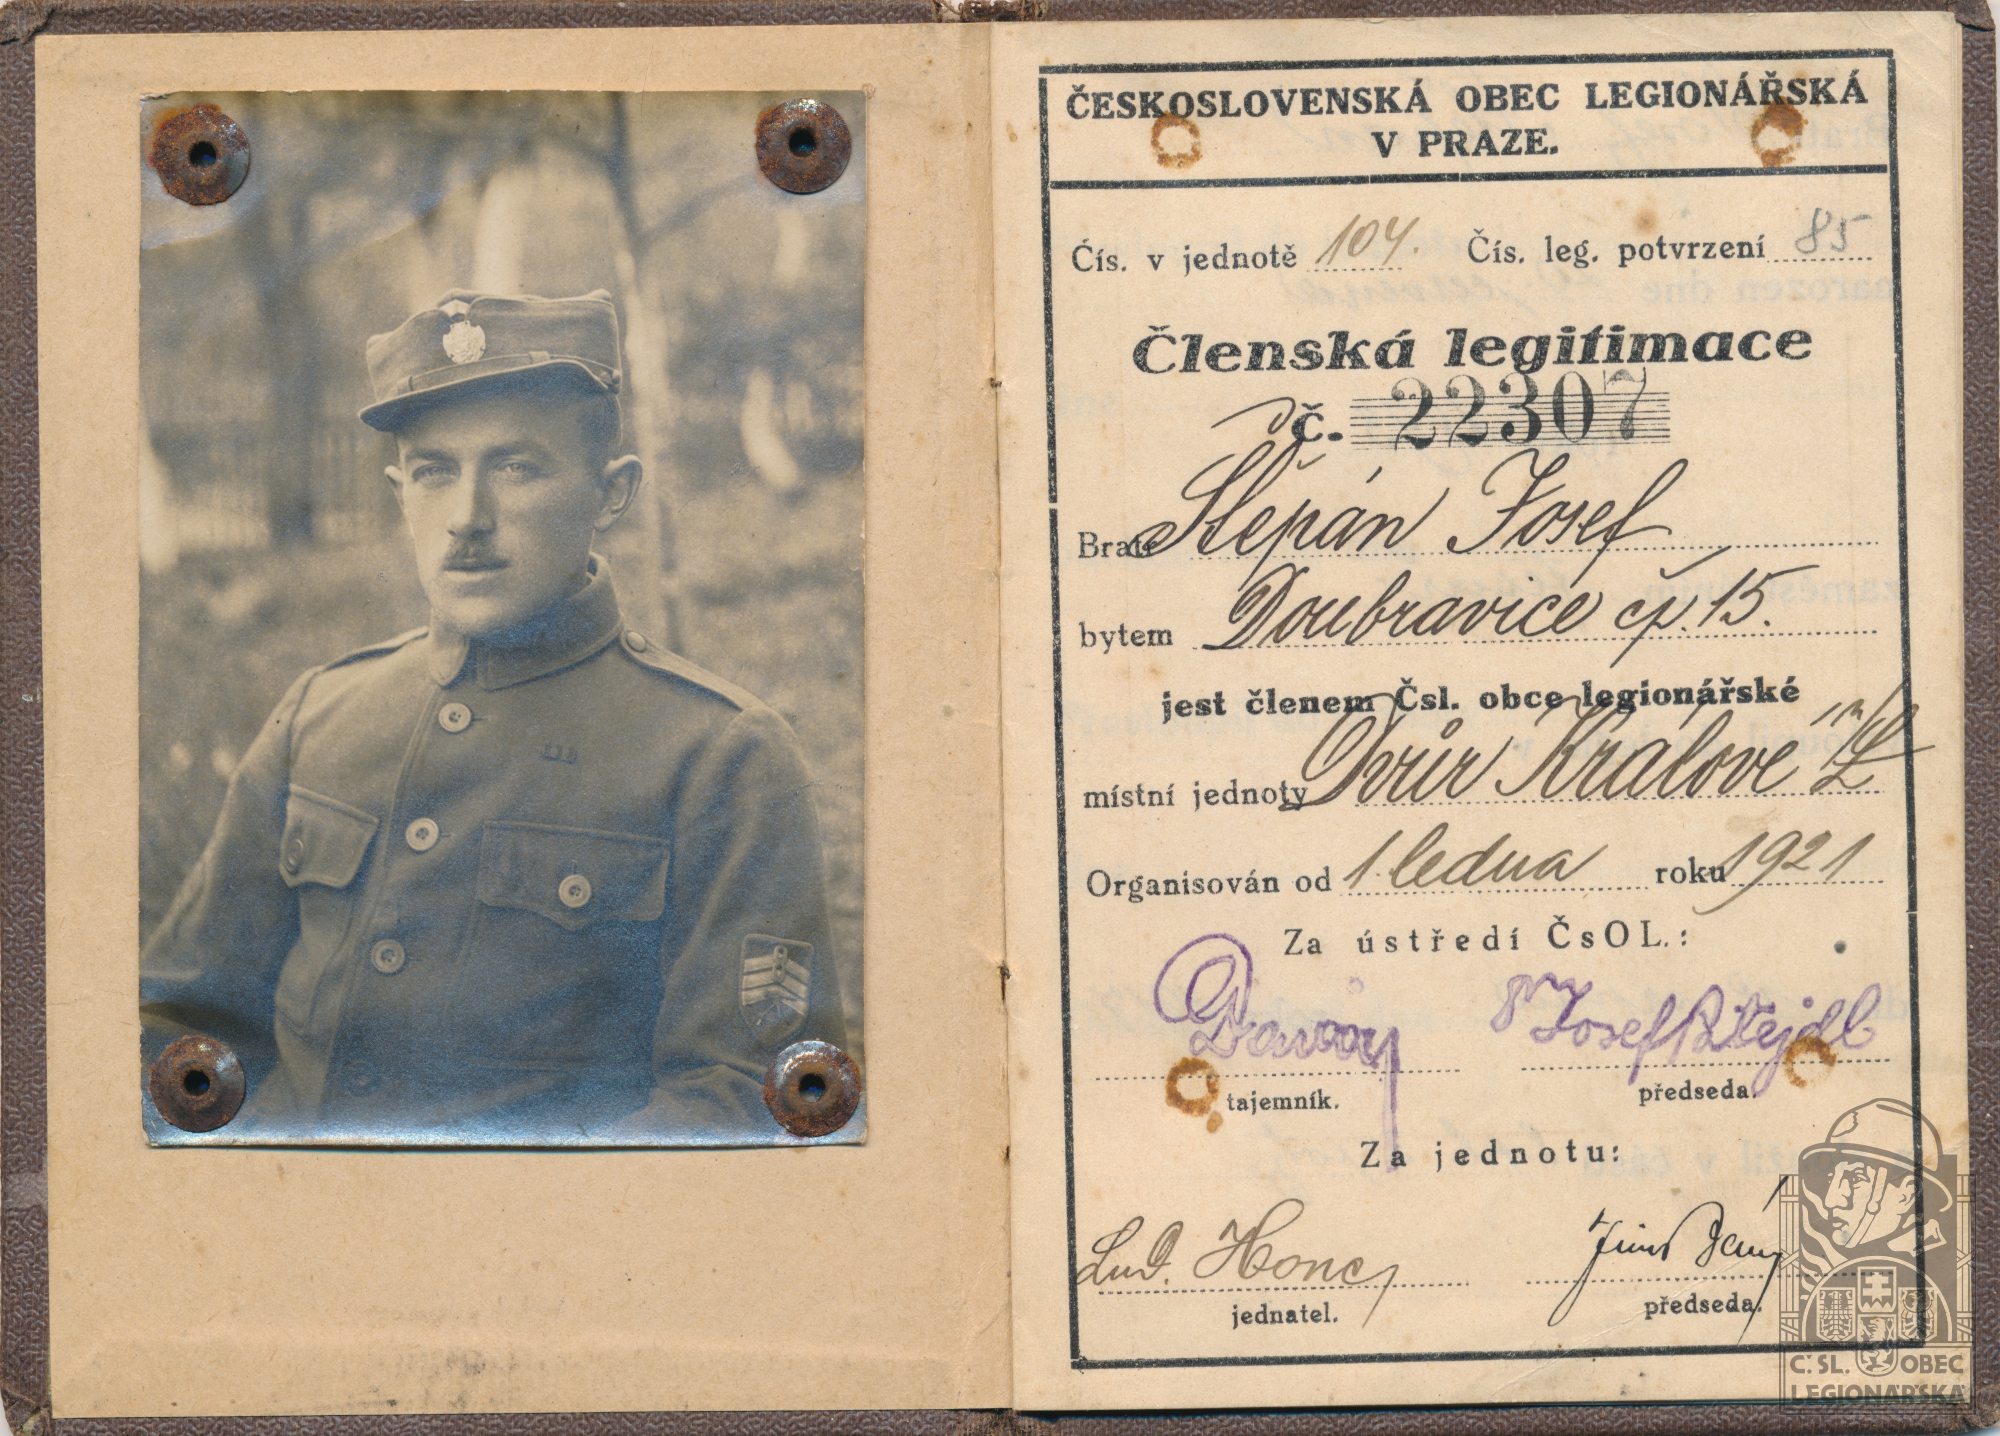 ČESKOSLOVENSKÁ OBEC LEGIONÁŘSKÁ
V PRAZE.
Čís. v jednotě 104. Čís. leg. potvrzení 85
Členská legitimace
č. 22307
Bratr Štěpán Josef
bytem Doubravice čp. 15.
jest členem Čsl. obce legionářské
místní jednoty Dvůr Králové n/L
Organisován od 1. ledna roku 1921
Za ústředí ČsOL.:
Josef
tajemník. předseda.
Za jednotu:
Lud. Honc
jednatel. předseda.
Č. SL. OBEC
LEGIONÁŘSKÁ